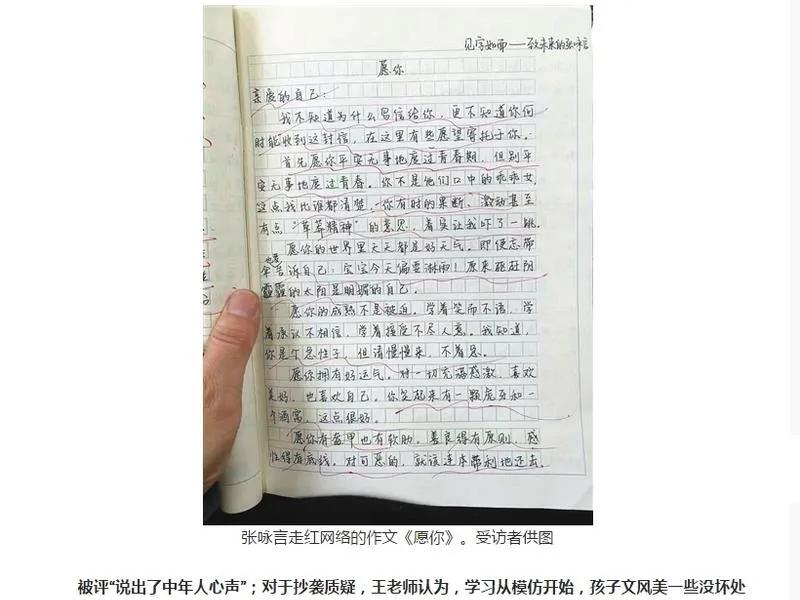 见字如面——致未来的张咏言
愿你
亲爱的自己：
我不知道为什么写信给你，更不知道你何
时能收到这封信，在这里有些愿望寄托于你。
首先愿你平安无事地度过青春期，但别平
安无事地度过青春。你不是他们口中的乖乖女，
这点我比谁都清楚。你有时的果断、激动甚至
有点“草莽精神”的意思，着实让我吓了一跳。
愿你的世界里天天都是好天气。即便忘带
伞也要告诉自己：宝宝今天偏要淋雨！原来驱赶阴
霾的太阳是明媚的自己。
愿你的成熟不是被迫。学着笑而不语，学
着承认不相信，学着接受不尽人意。我知道，
你是个急性子，但请慢慢来，不着急。
愿你拥有好运气。对一切充满感激，喜欢
美好，也喜欢自己。你笑起来有一颗虎牙和一
个酒窝，这点很好。
愿你有盔甲也有软肋，善良得有原则，感
性得有底线。对可恶的，就该连本带利地还去。
张咏言走红网络的作文《愿你》。受访者供图
被评“说出了中年人心声”；对于抄袭质疑，王老师认为，学习从模仿开始，孩子文风美一些没坏处